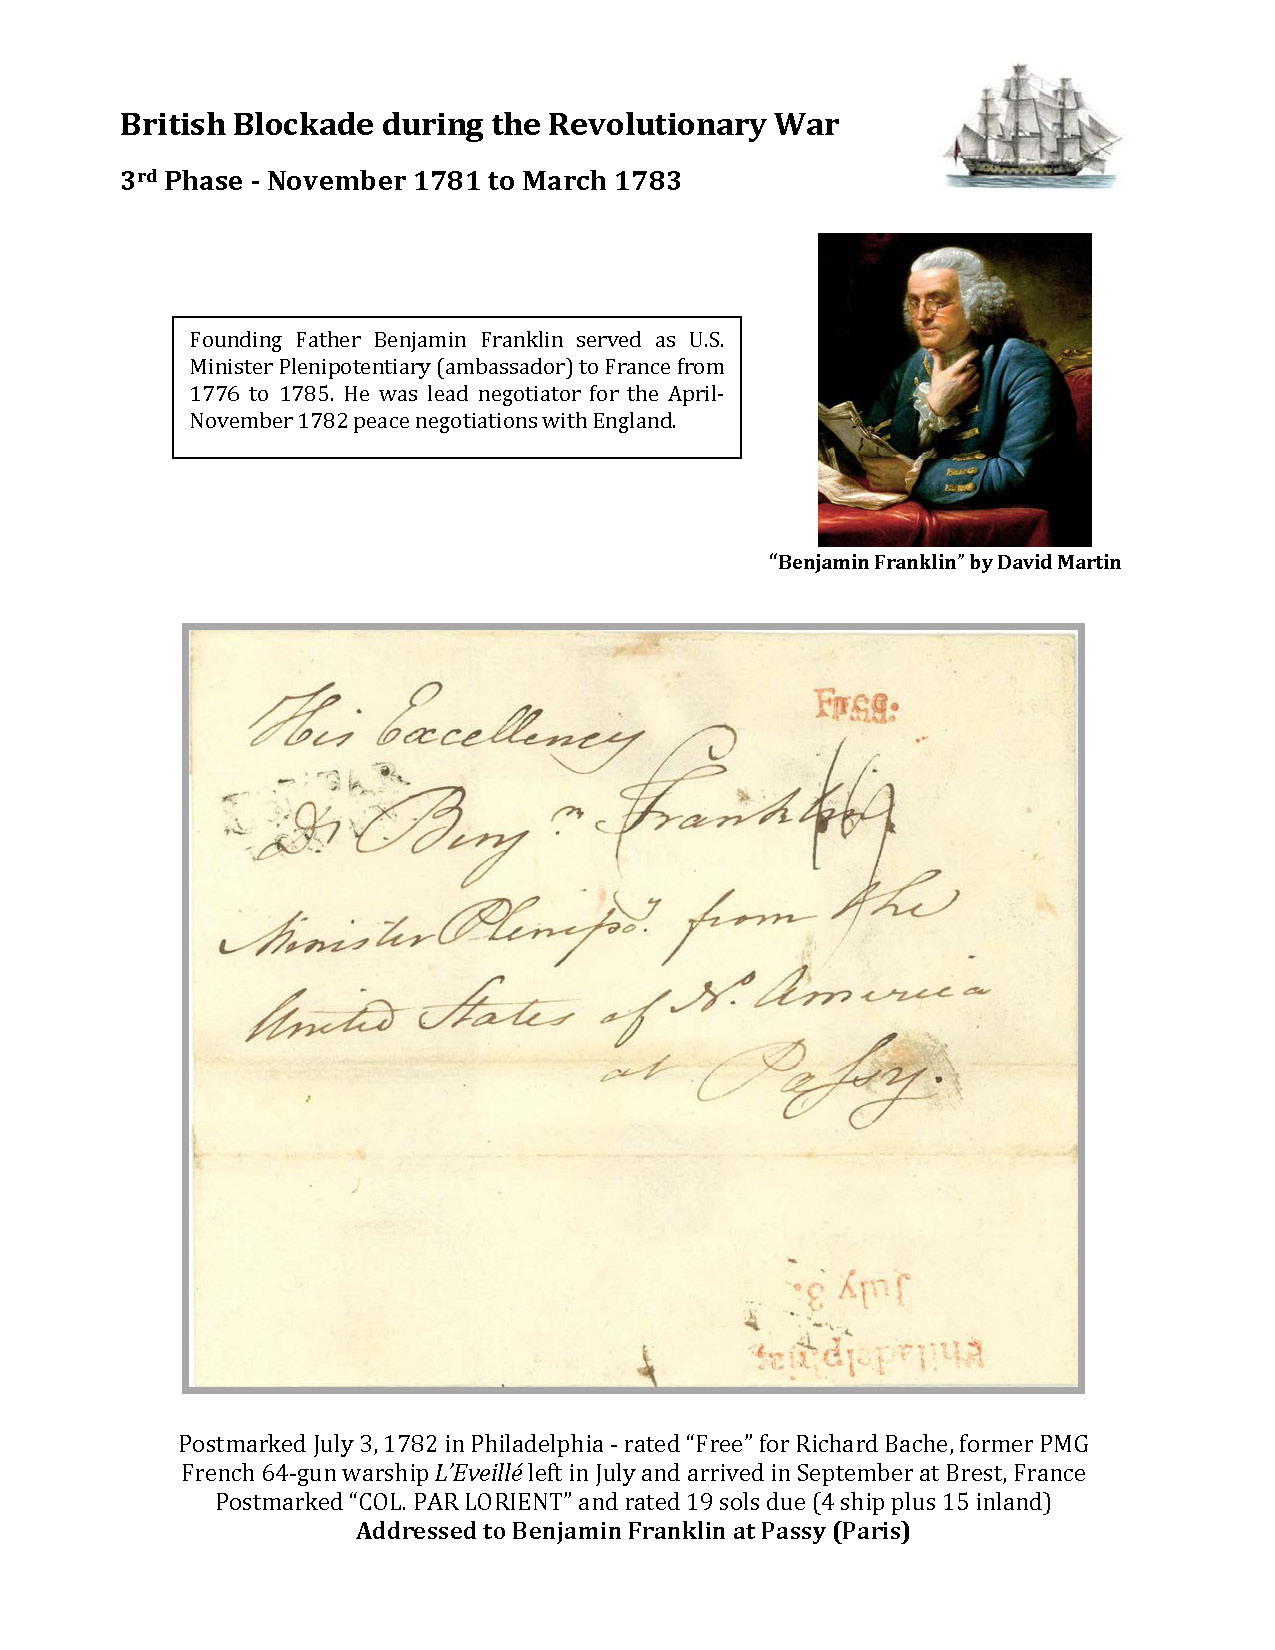 British Blockade during the Revolutionary War
3rd Phase - November 1781 to March 1783
Founding Father Benjamin Franklin served as U.S.
Minister Plenipotentiary (ambassador) to France from
1776 to 1785. He was lead negotiator for the April-
November 1782 peace negotiations with England.
“Benjamin Franklin” by David Martin
Free.
His Excellency
Dr Benjm Franklin
19
Minister Plenipoy. from the
United States of No. America
at Passy.
July 3.
Philadelphia,
Postmarked July 3, 1782 in Philadelphia - rated “Free” for Richard Bache, former PMG
French 64-gun warship L’Eveillé left in July and arrived in September at Brest, France
Postmarked “COL. PAR LORIENT” and rated 19 sols due (4 ship plus 15 inland)
Addressed to Benjamin Franklin at Passy (Paris)